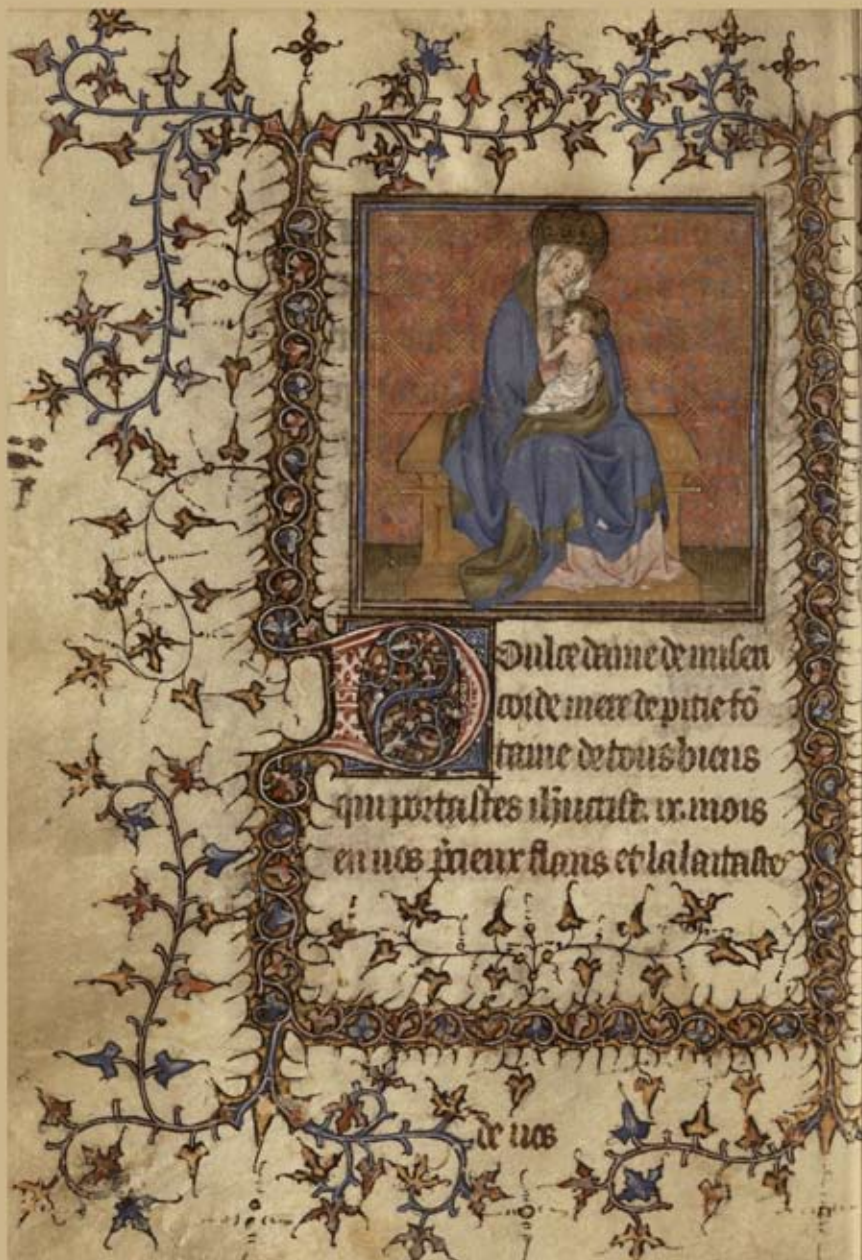 Doulce dame de miseri
corde mere de pitie fõ
taine de tous biens
qui portastes ihucrist. ix. mois
en uos p̃cieux flans et lalaitastes
de uos